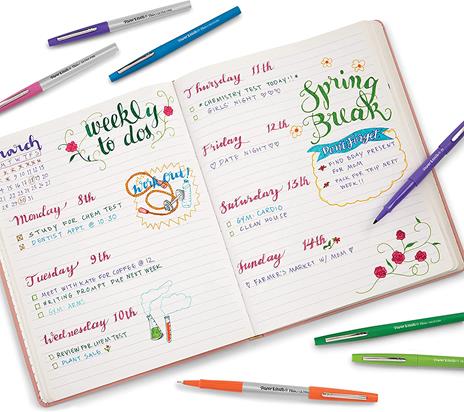 Paper Mate
Paper Mate
Paper Mate
march
weekly
to dos
Monday 8th
STUDY FOR CHEM TEST
DENTIST APPT. @ 10:30
work out!
Tuesday 9th
MEET WITH KATE FOR COFFEE @ 12
WRITING PROMPT DUE NEXT WEEK
GYM: ARMS
Wednesday 10th
REVIEW FOR CHEM TEST
PLANT SALE
Thursday 11th
*CHEMISTRY TEST TODAY!!*
GIRLS NIGHT ♡♡♡
Friday 12th
♡ DATE NIGHT ♡
Saturday 13th
GYM: CARDIO
CLEAN HOUSE
Sunday 14th
♡ FARMER'S MARKET W/ MOM ♡
Spring
Break
Don't Forget
FIND BDAY PRESENT
FOR MOM
PACK FOR TRIP NEXT
WEEK!!
Paper Mate
Paper Mate
Paper Mate
Paper Mate